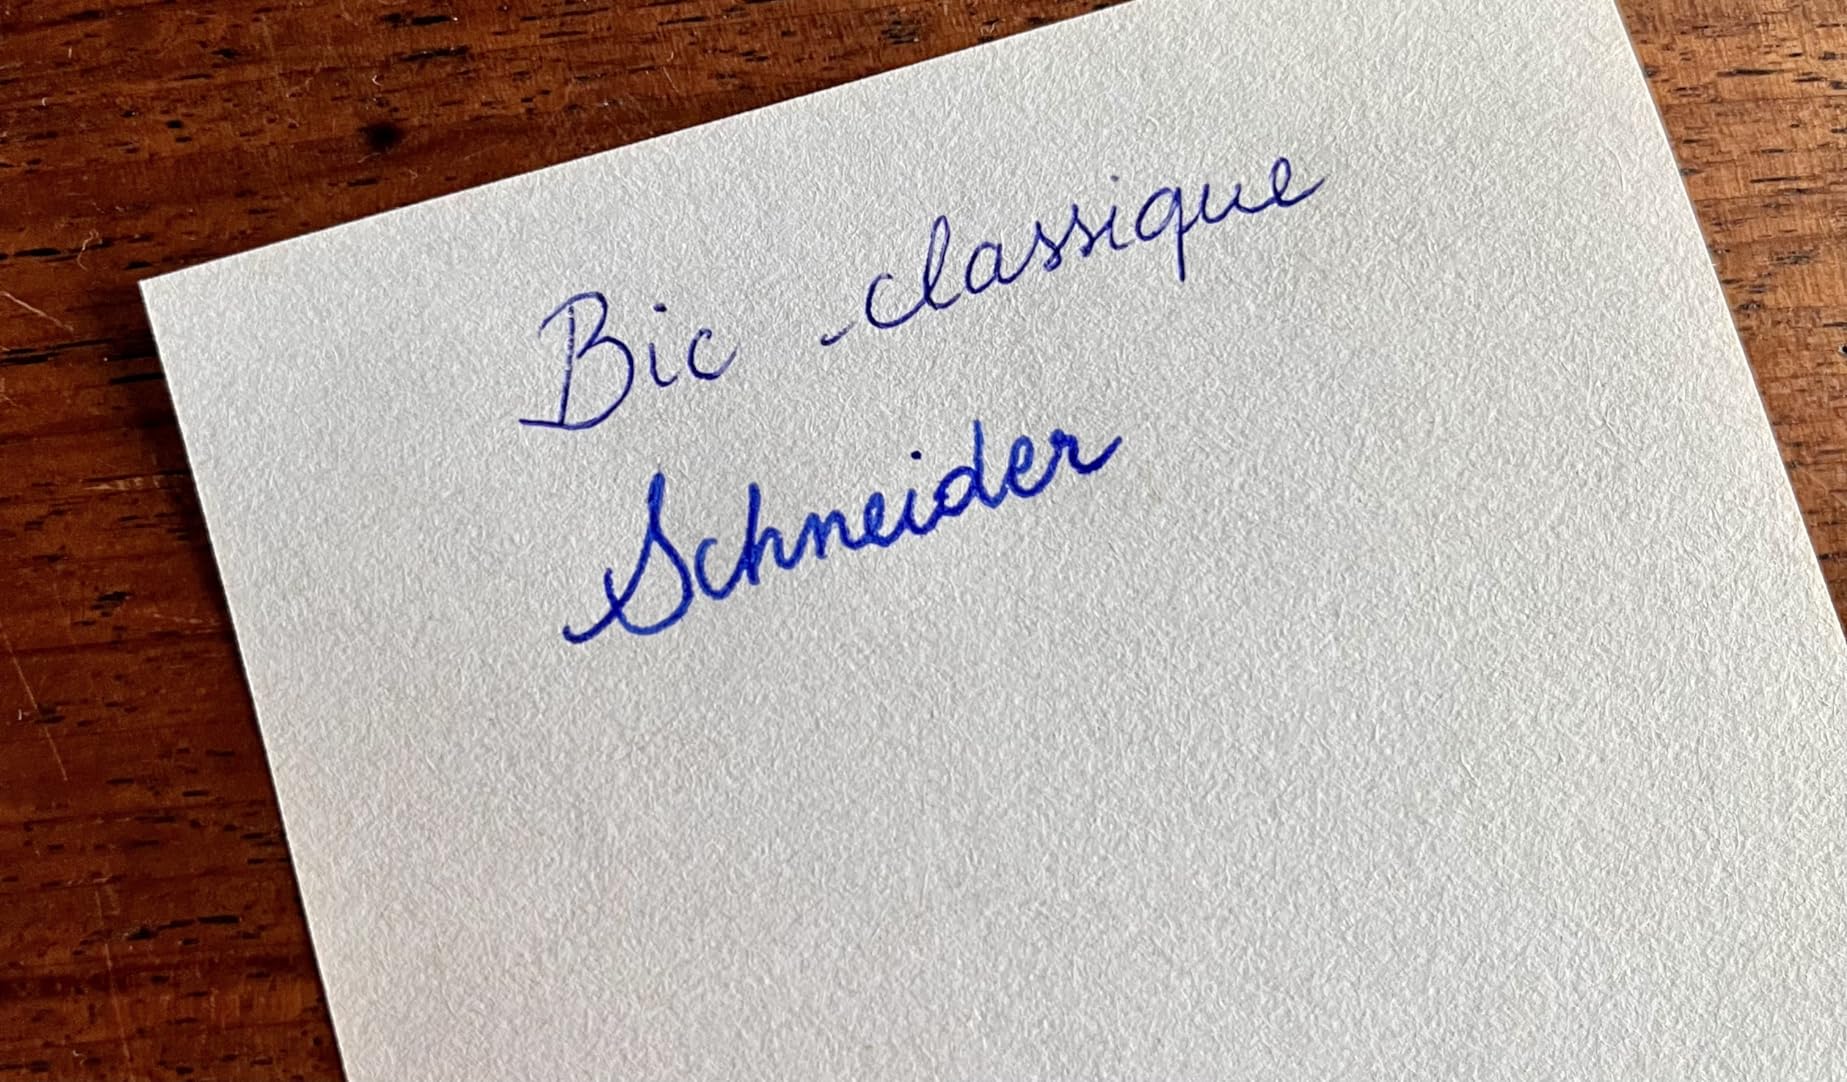 Bic classique
Schneider